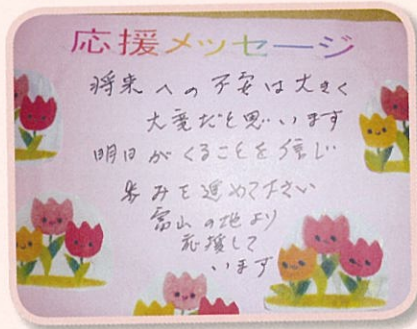 応援メッセージ
将来への不安は大きく
大変だと思います
明日がくることを信じ
歩みを進めて下さい
富山の地より
応援して
います